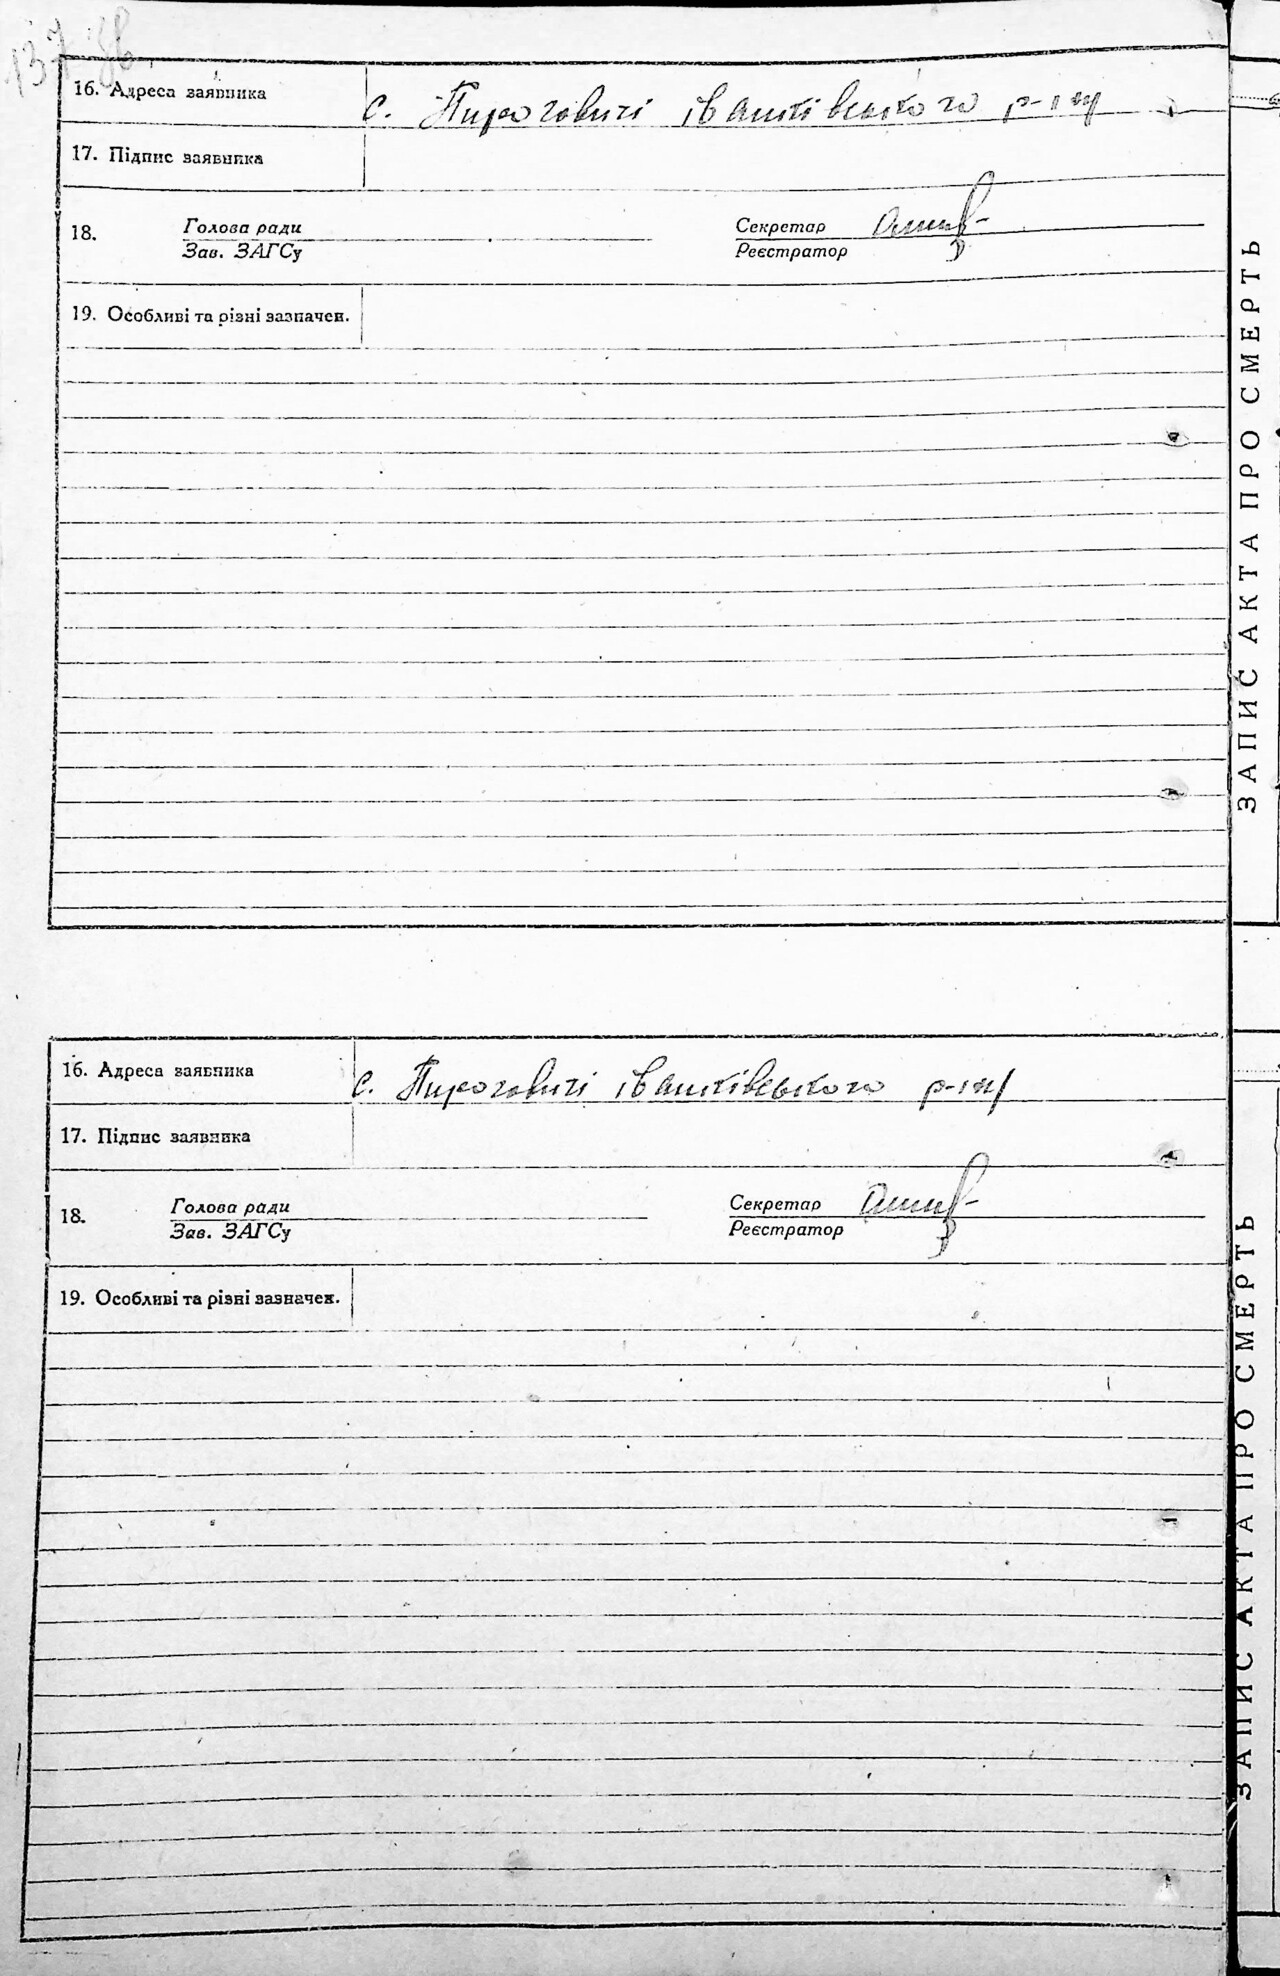 137 зв.
16. Адреса заявника с. Пироговичі іванківського р-ну
17. Підпис заявника
18. Голова ради Секретар
Зав. ЗАГСу Реєстратор
19. Особливі та різні зазначен.
ЗАПИС АКТА ПРО СМЕРТЬ
16. Адреса заявника с. Пироговичі іванківського р-ну
17. Підпис заявника
18. Голова ради Секретар
Зав. ЗАГСу Реєстратор
19. Особливі та різні зазначен.
ЗАПИС АКТА ПРО СМЕРТЬ